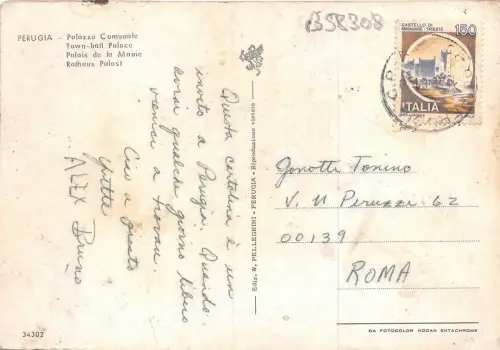 PERUGIA - Palazzo Comunale
Town-hall Palace
Palais de la Mairie
Rathaus Palast
B58308
CASTELLO DI
MIRAMARE - TRIESTE
150
ITALIA
Questa cartolina è un
invito a Perugia. Quando
avrai qualche giorno libero
vieni a trovarci.
Ciao a presto
ALEX Bruno
Ediz. W. PELLEGRINI - PERUGIA - Riproduzione vietata
Gonotti Tonino
V. U Peruzzi 62
00139
ROMA
34302
DA FOTOCOLOR KODAK EKTACHROME